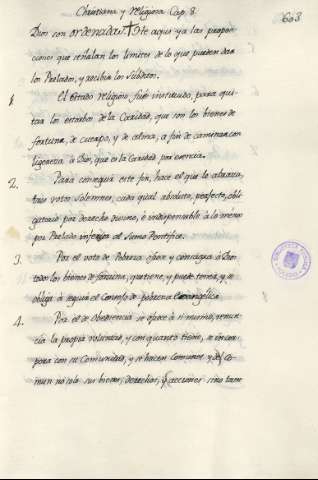 Christiana y religiosa Cap. 8.
603
Dios son ordenadas. He aqui ya las proposi
ciones que señalan los limites de lo que pueden dar
los Prelados, y recibir los súbditos.
1. El estado religioso, fué instituido, para qui
tar los estorbos de la Caridad, que son los bienes de
fortuna, de cuerpo, y de alma, a fin de caminar con
ligereza a Dios, que es la Caridad por esencia.
2. Para conseguir este fin, hace el que lo abraza,
tres votos solemnes, cada qual absoluto, perfecto, obli
gatorio por derecho divino, e indispensable à lo menos
por Prelado inferior al Sumo Pontifice.
3. Por el voto de Pobreza ofrece y consagra à Dios
todos los bienes de fortuna, que tiene, y puede tener, y se
obliga à seguir el Consejo de pobreza Evangélica.
4. Por el de Obediencia se ofrece à si mismo, renun
cia la propia voluntad, y con quanto tiene, se incor
pora con su Comunidad, y se hacen comunes y de Co
mun no solo sus bienes, derechos, y acciones sino tam